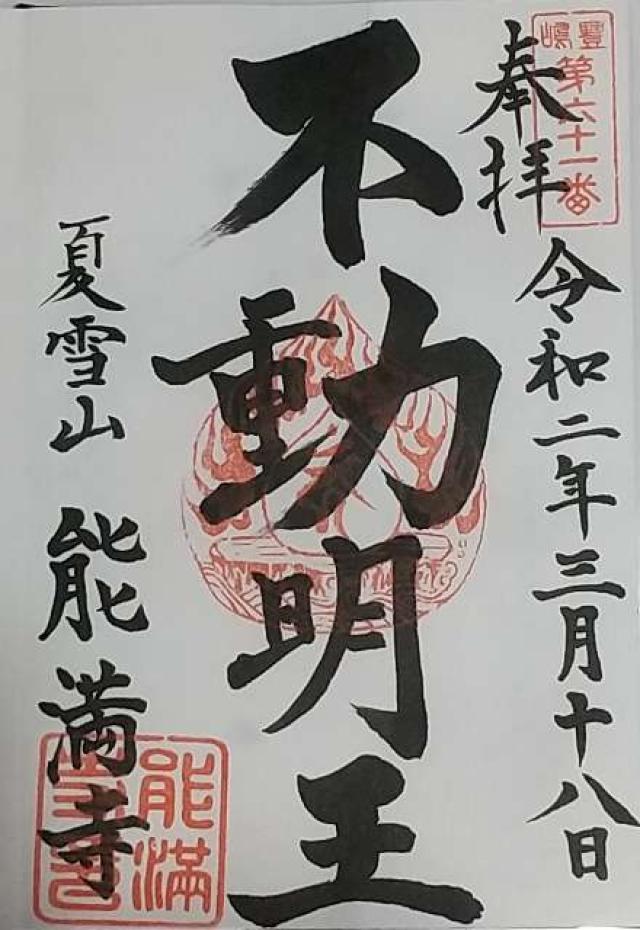 奉拝
豐嶋
第六十一番
令和二年三月十八日
不動明王
夏雪山 能満寺
能滿